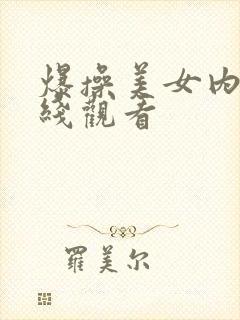 爆操美女内
线观看
羅美尔